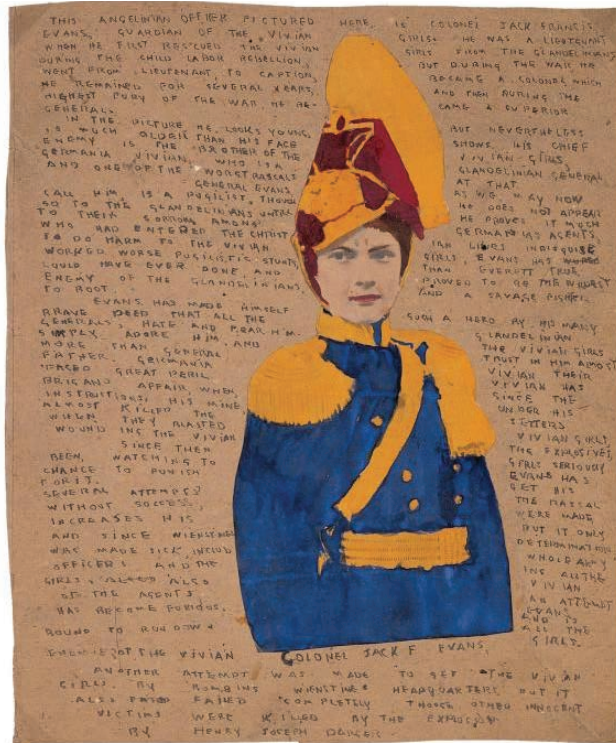 THIS ANGELINIAN OFFICER PICTURED HERE, IS COLONEL JACK FRANCIS
EVANS, GUARDIAN OF THE VIVIAN GIRLS. HE WAS A LIEUTENANT
WHEN HE FIRST RESCUED THE VIVIAN GIRLS FROM THE GLANDELINIANS
DURING THE CHILD LABOR REBELLION, BUT DURING THE WAR HE
WENT FROM LIEUTENANT, TO CAPTION, BECAME A COLONEL WHICH
HE REMAINED FOR SEVERAL YEARS, AND THEN DURING THE
HIGHEST FURY OF THE WAR, HE BE- CAME A SUPERIOR
GENERAL.
IN THE PICTURE HE LOOKS YOUNG, BUT NEVERTHELESS
IS MUCH OLDER THAN HIS FACE SHOWS. HIS CHIEF
ENEMY IS THE BROTHER OF THE VIVIAN GIRLS,
GERMANIA VIVIAN, WHO IS A GLANDELINIAN GENERAL
AND ONE OF THE WORST RASCALS AT THAT.
GENERAL EVANS, AS WE MAY NOW
CALL HIM IS A PUGILIST, THOUGH HE DOES NOT APPEAR
SO TO THE GLANDELINIANS HE PROVES IT MUCH
TO THEIR SORROW AMONG GERMANIAS AGENTS
WHO HAD ENTERED THE CHRIST IAN LINES IN DISGUISE
TO DO HARM TO THE VIVIAN GIRLS, EVANS HAS
WORKED WORSE PUGILISTIC STUNTS, THAN EVERETT TRUE
COULD HAVE EVER DONE AND PROVED TO BE THE WORST
ENEMY OF THE GLANDELINIANS AND A SAVAGE FIGHTER
TO BOOT.
EVANS HAD MADE HIMSELF SUCH A HERO BY HIS MANY
BRAVE DEED THAT ALL THE GLANDELINIAN
GENERALS, HATE AND FEAR HIM. THE VIVIAN GIRLS
SIMPLY ADORE HIM, AND TRUST IN HIM ALMOST
MORE THAN GENERAL VIVIAN THEIR
FATHER. GERMANIA VIVIAN HAS
FACED GREAT PERIL SINCE THE
BRIGAND AFFAIR, WHEN UNDER HIS
INSTRUCTIONS, HIS MINE SETTERS
ALMOST KILLED THE VIVIAN GIRLS
WHEN THEY BLASTED THE EXPLOSIVES
WOUNDING THE VIVIAN GIRLS SERIOUSLY
SINCE THEN EVANS HAS
BEEN, WATCHING TO GET HIS
CHANCE TO PUNISH THE RASCAL
FOR IT.
SEVERAL ATTEMPTS WERE MADE
WITHOUT SUCCESS, BUT IT ONLY
INCREASES HIS DETERMINATION
AND SINCE WIENSTINE WHOLE ARMY
WAS MADE SICK, INCLUD ING ALL THE
OFFICERS AND THE VIVIAN
GIRLS, ALSO AN ATTEMPT
OF THE AGENTS EVANS
HAS BECOME FURIOUS, AND IS
BOUND TO RUN DOWN ALL THE
ENEMIES OF THE VIVIAN GIRLS.
COLONEL JACK F EVANS.
ANOTHER ATTEMPT WAS MADE TO GET THE VIVIAN
GIRLS BY BOMBING WIENSTINE HEADQUARTERS BUT IT
ALSO FAILED COMPLETELY THOUGH OTHER INNOCENT
VICTIMS WERE KILLED BY THE EXPLOSION
BY HENRY JOSEPH DARGER